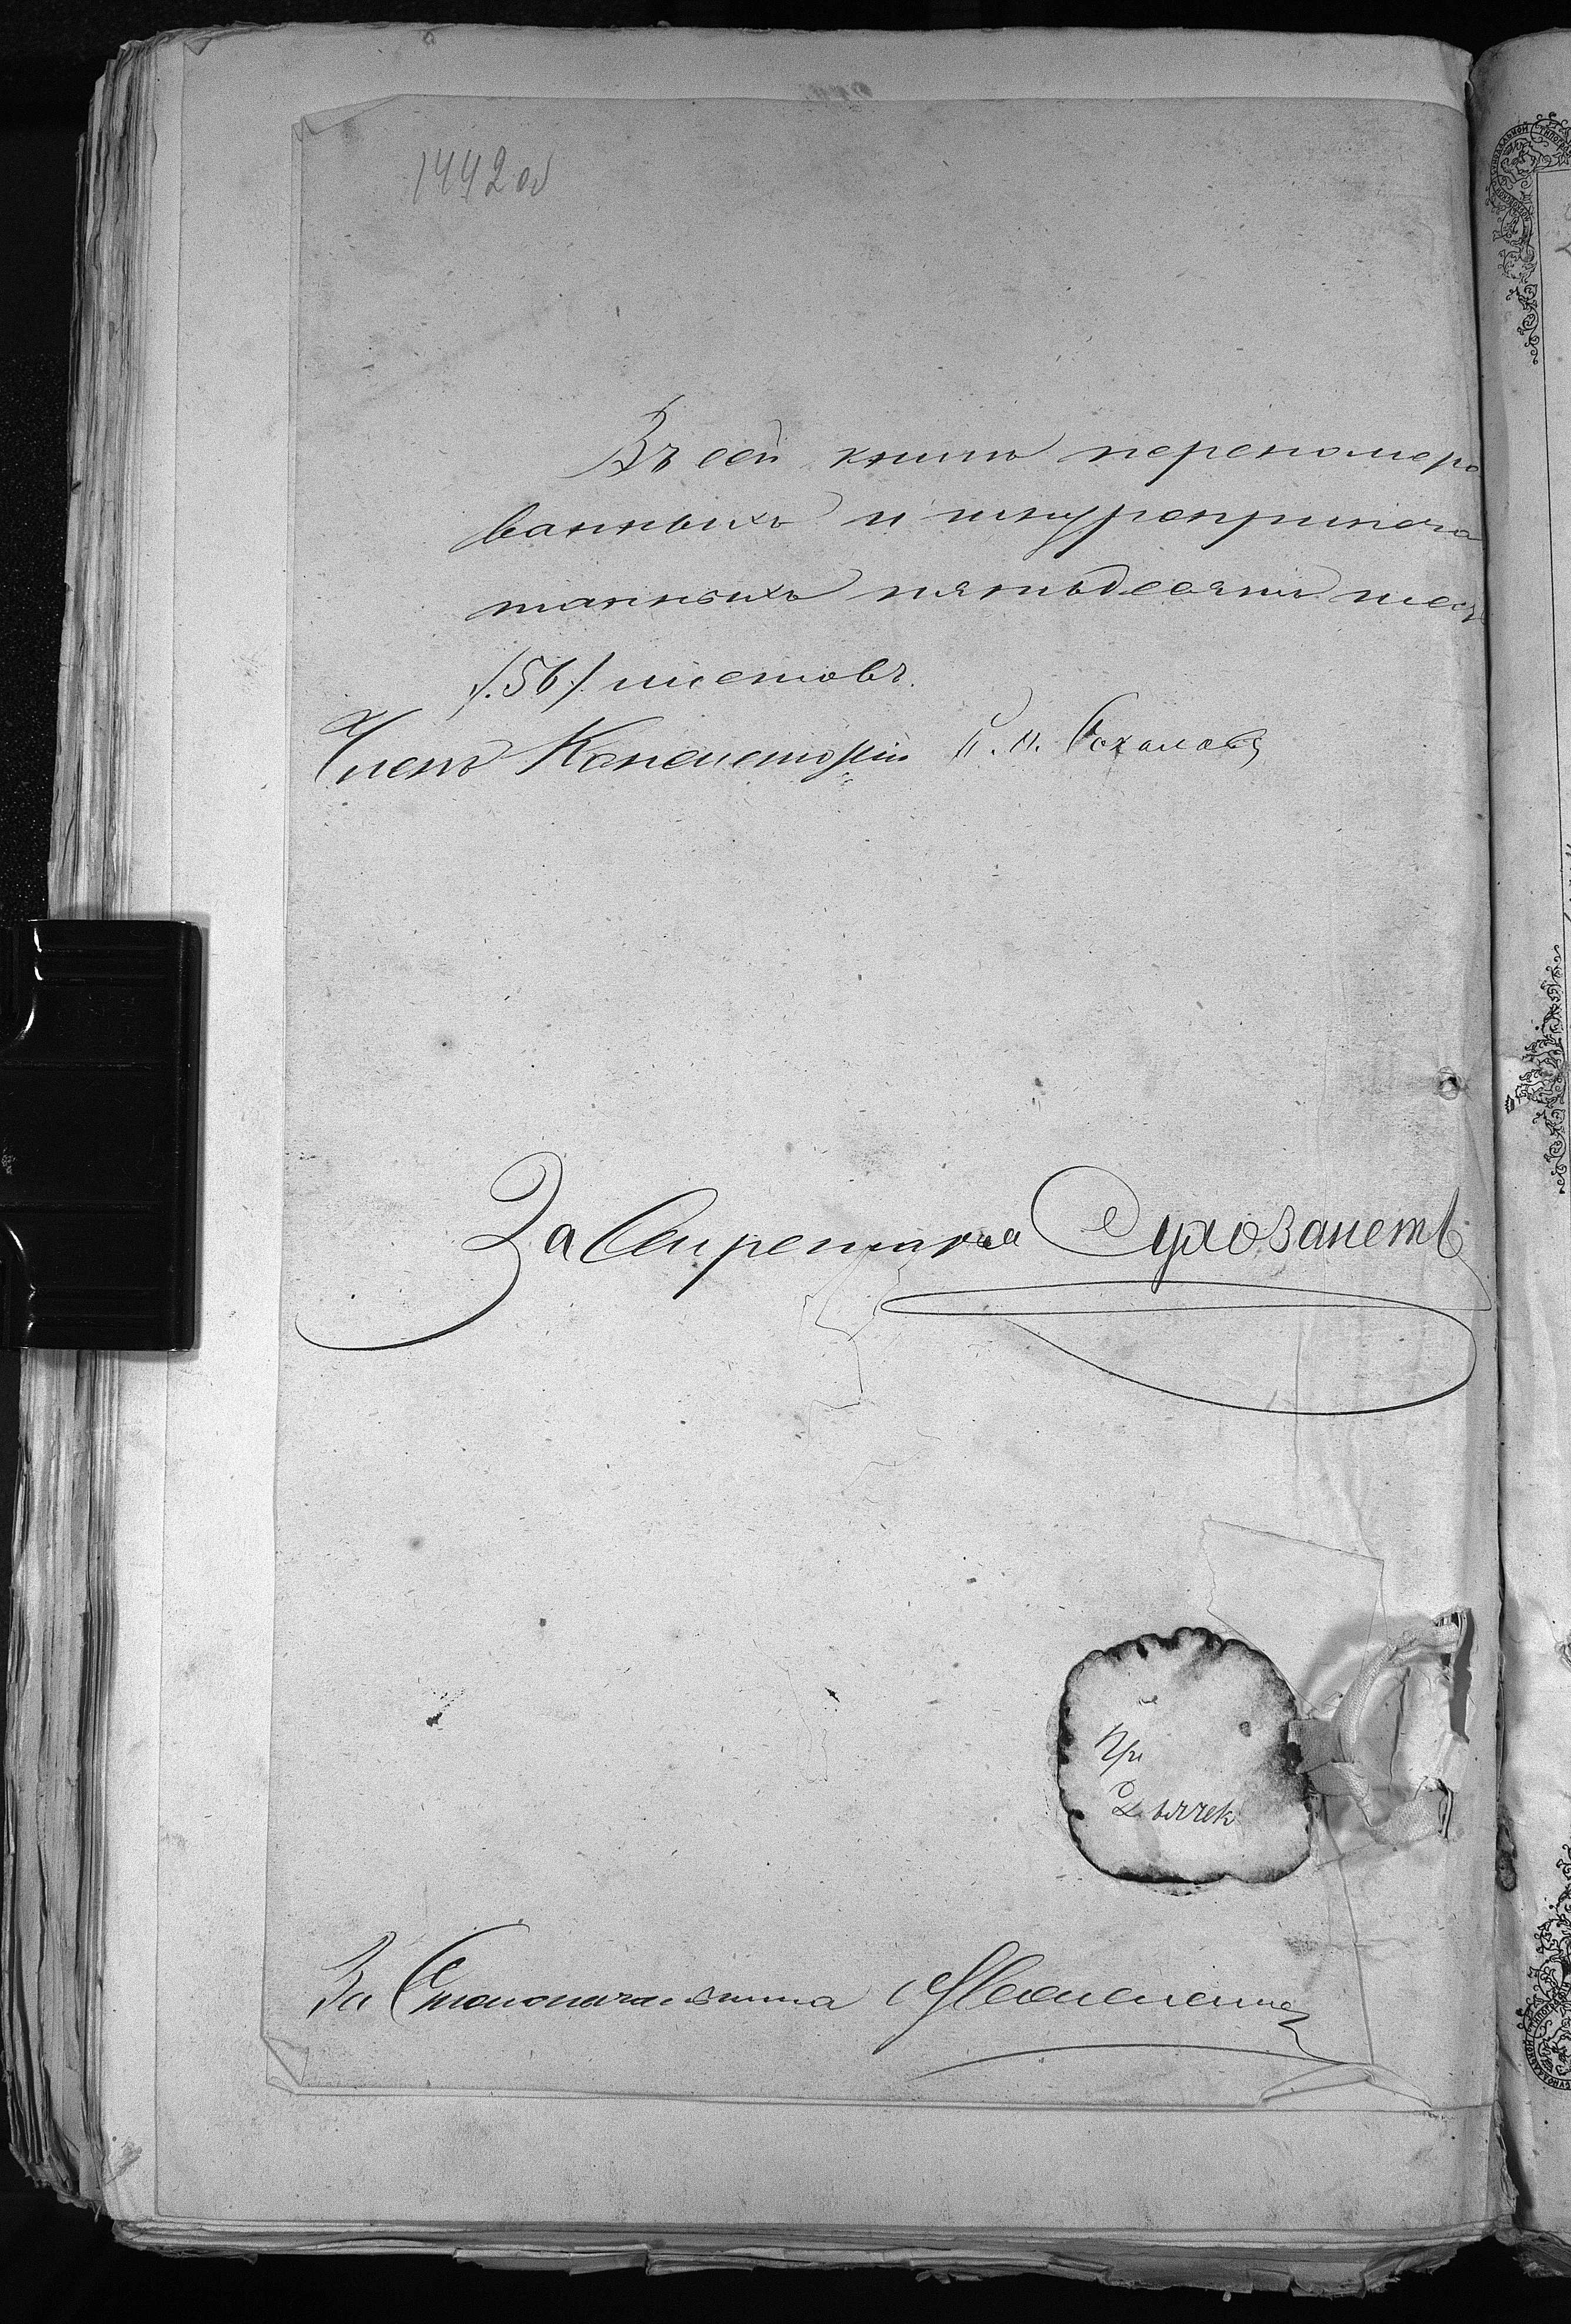 1442 об
Въ сей книгѣ переномеро
ванныхъ и шнуроприпеча
танныхъ пятьдесятъ шест
/.56./ листовъ.
Членъ Консисторіи
За Секретаря Сухозанетъ
За Столоначальника